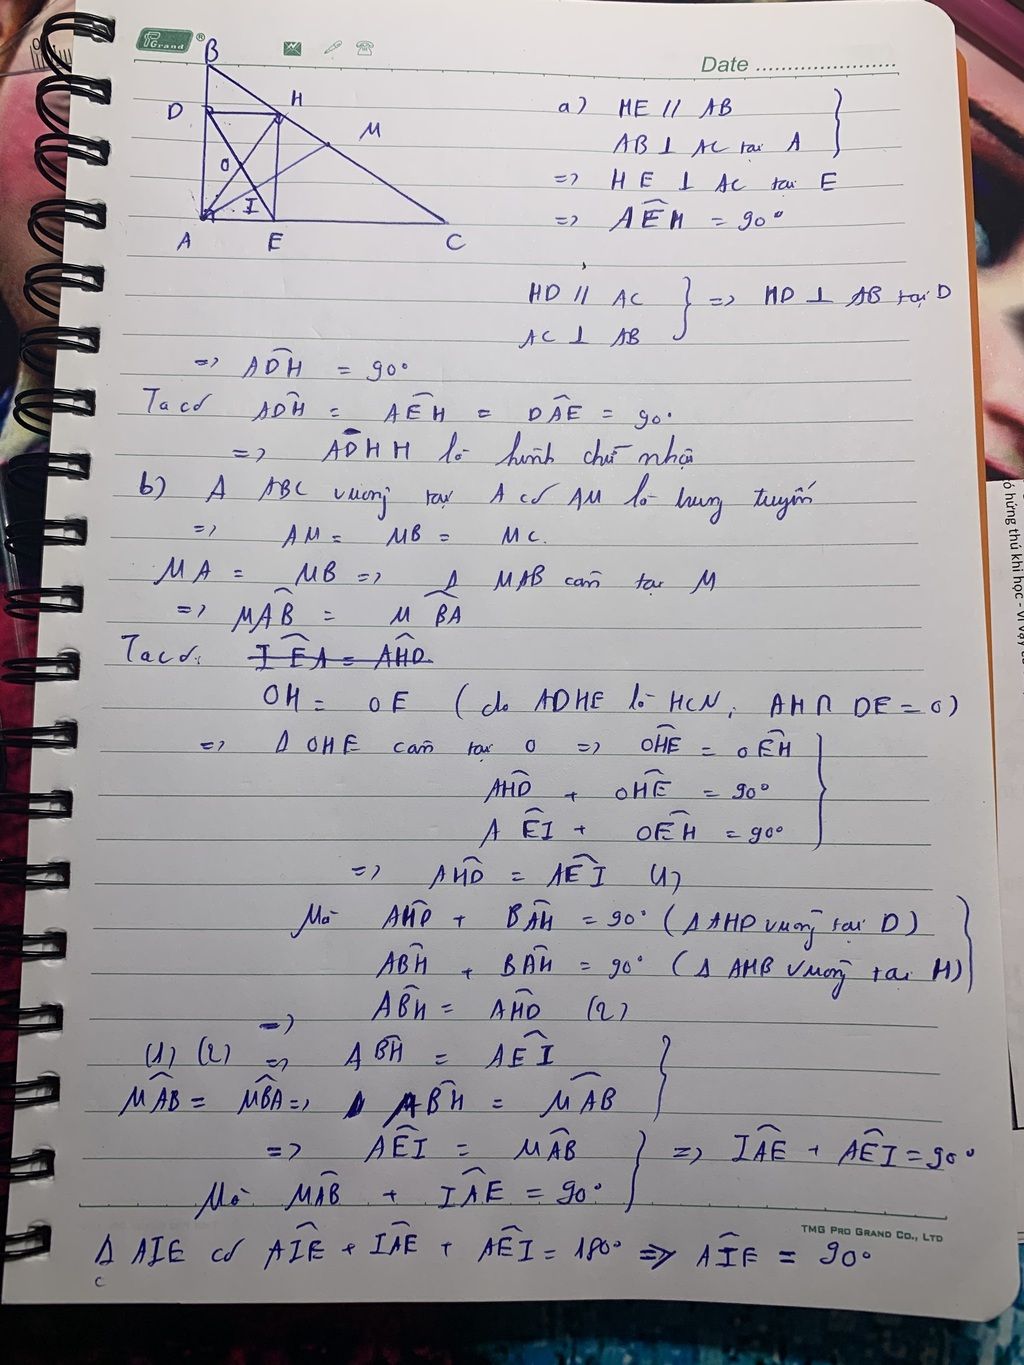 Grand ®
Date
B
D
H
M
O
I
A
E
C
a) HE // AB
AB ⊥ AC tại A
=> HE ⊥ AC tại E
=> AÊH = 90°
HD // AC
AC ⊥ AB
=> HD ⊥ AB tại D
=> ADH = 90°
Ta có ADH = AÊH = DÂE = 90°
=> ADHH là hình chữ nhật
b) Δ ABC vuông tại A có AM là trung tuyến
=> AM = MB = MC.
MA = MB => Δ MAB cân tại M
=> MÂB = MBA
Ta có: IÊA = AHD
OH = OE (do ADHE là HCN; AH ∩ DE = O)
=> Δ OHE cân tại O => OHE = OÊH
AHD + OHE = 90°
AÊI + OÊH = 90°
=> AHD = AÊI (1)
Mà AHD + BÂH = 90° (Δ AHD vuông tại D)
ABH + BÂH = 90° (Δ AHB vuông tại H)
=> ABH = AHD (2)
(1) (2) => ABH = AÊI
MÂB = MBA => ABH = MÂB
=> AÊI = MÂB
Mà MÂB + IÂE = 90°
=> IÂE + AÊI = 90°
TMG PRO GRAND CO., LTD
Δ AIE có AÎE + IÂE + AÊI = 180° => AÎE = 90°
c
ó hứng thú khi học - vì vậy